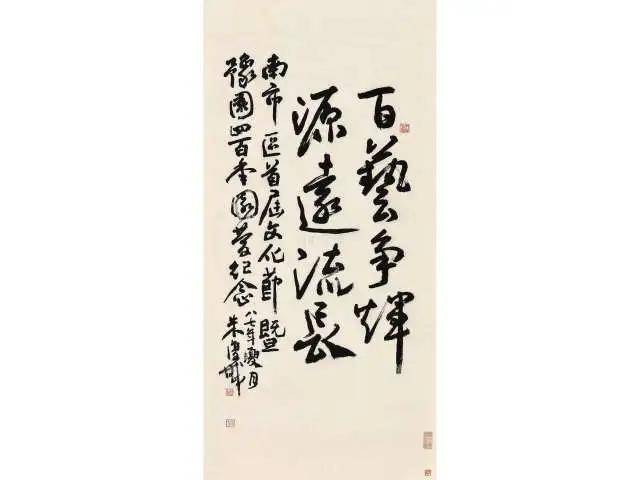 百藝争輝
源遠流長
南市區首屆文化節暨
豫園四百年園慶紀念
八七年夏月
朱復戡